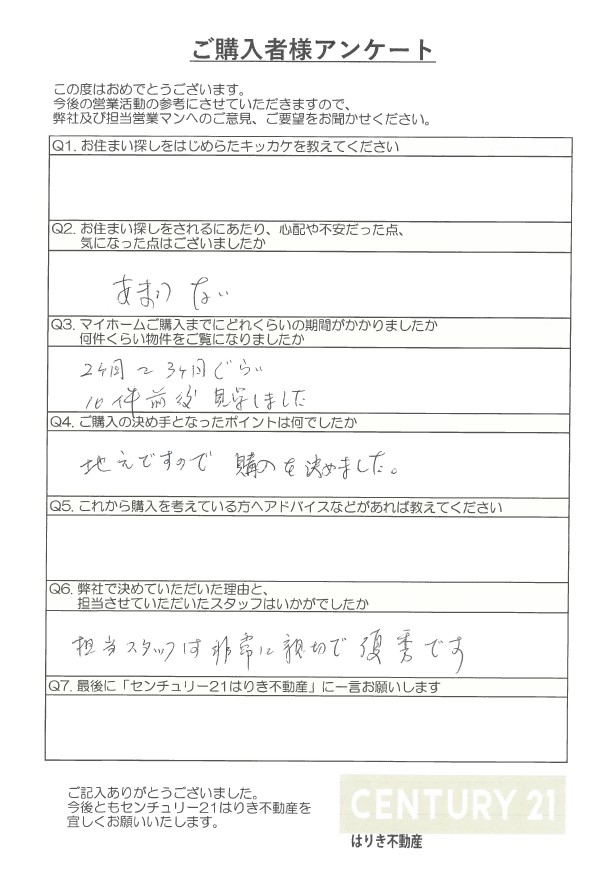 ご購入者様アンケート
この度はおめでとうございます。
今後の営業活動の参考にさせていただきますので、
弊社及び担当営業マンへのご意見、ご要望をお聞かせください。
Q1. お住まい探しをはじめらたキッカケを教えてください
Q2. お住まい探しをされるにあたり、心配や不安だった点、
気になった点はございましたか
あまり ない
Q3. マイホームご購入までにどれくらいの期間がかかりましたか
何件くらい物件をご覧になりましたか
2ヶ月〜3ヶ月ぐらい
10件前後 見学しました
Q4. ご購入の決め手となったポイントは何でしたか
地元ですので 購入を決めました。
Q5. これから購入を考えている方へアドバイスなどがあれば教えてください
Q6. 弊社で決めていただいた理由と、
担当させていただいたスタッフはいかがでしたか
担当スタッフは非常に親切で優秀です
Q7. 最後に「センチュリー21はりき不動産」に一言お願いします
ご記入ありがとうございました。
今後ともセンチュリー21はりき不動産を
宜しくお願いいたします。
CENTURY 21
はりき不動産